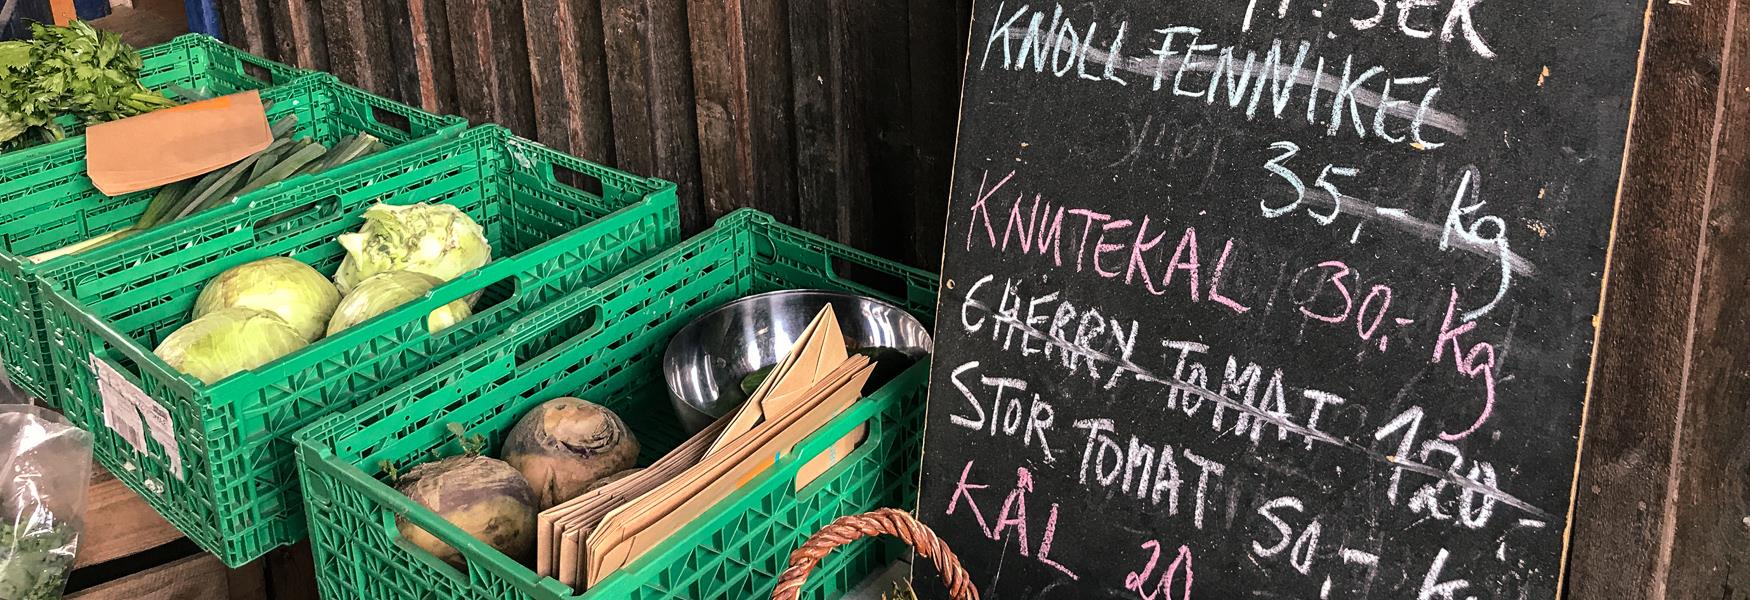 KNOLL FENNIKEL
35,- kg
KNUTEKÅL 30,- kg
CHERRY TOMAT 120,-
STOR TOMAT 50,- k
KÅL 20